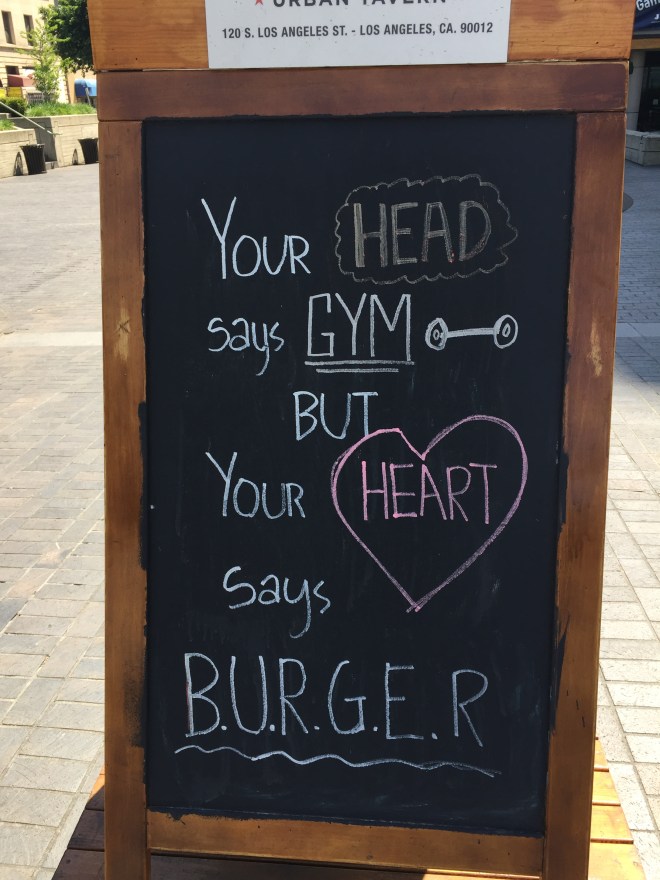 URBAN TAVERN
120 S. LOS ANGELES ST. - LOS ANGELES, CA. 90012
YOUR HEAD
says GYM
BUT
YOUR HEART
says
B.U.R.G.E.R